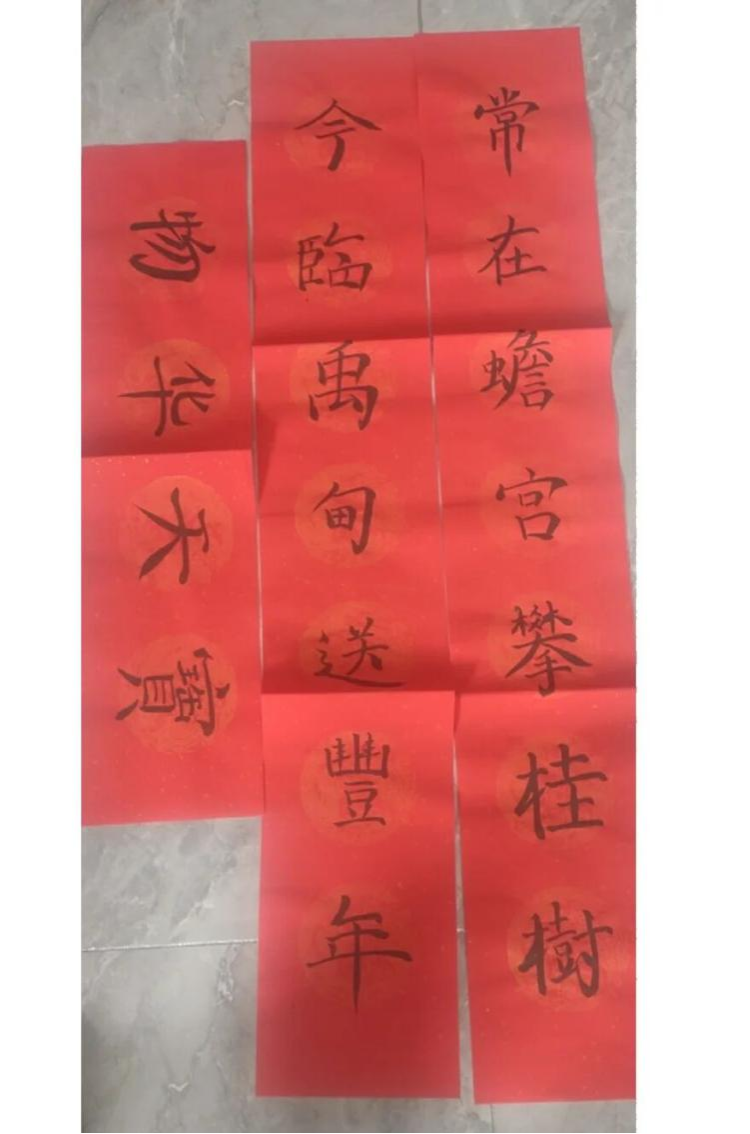 常在蟾宮攀桂樹
今臨禹甸送豐年
物华天寶